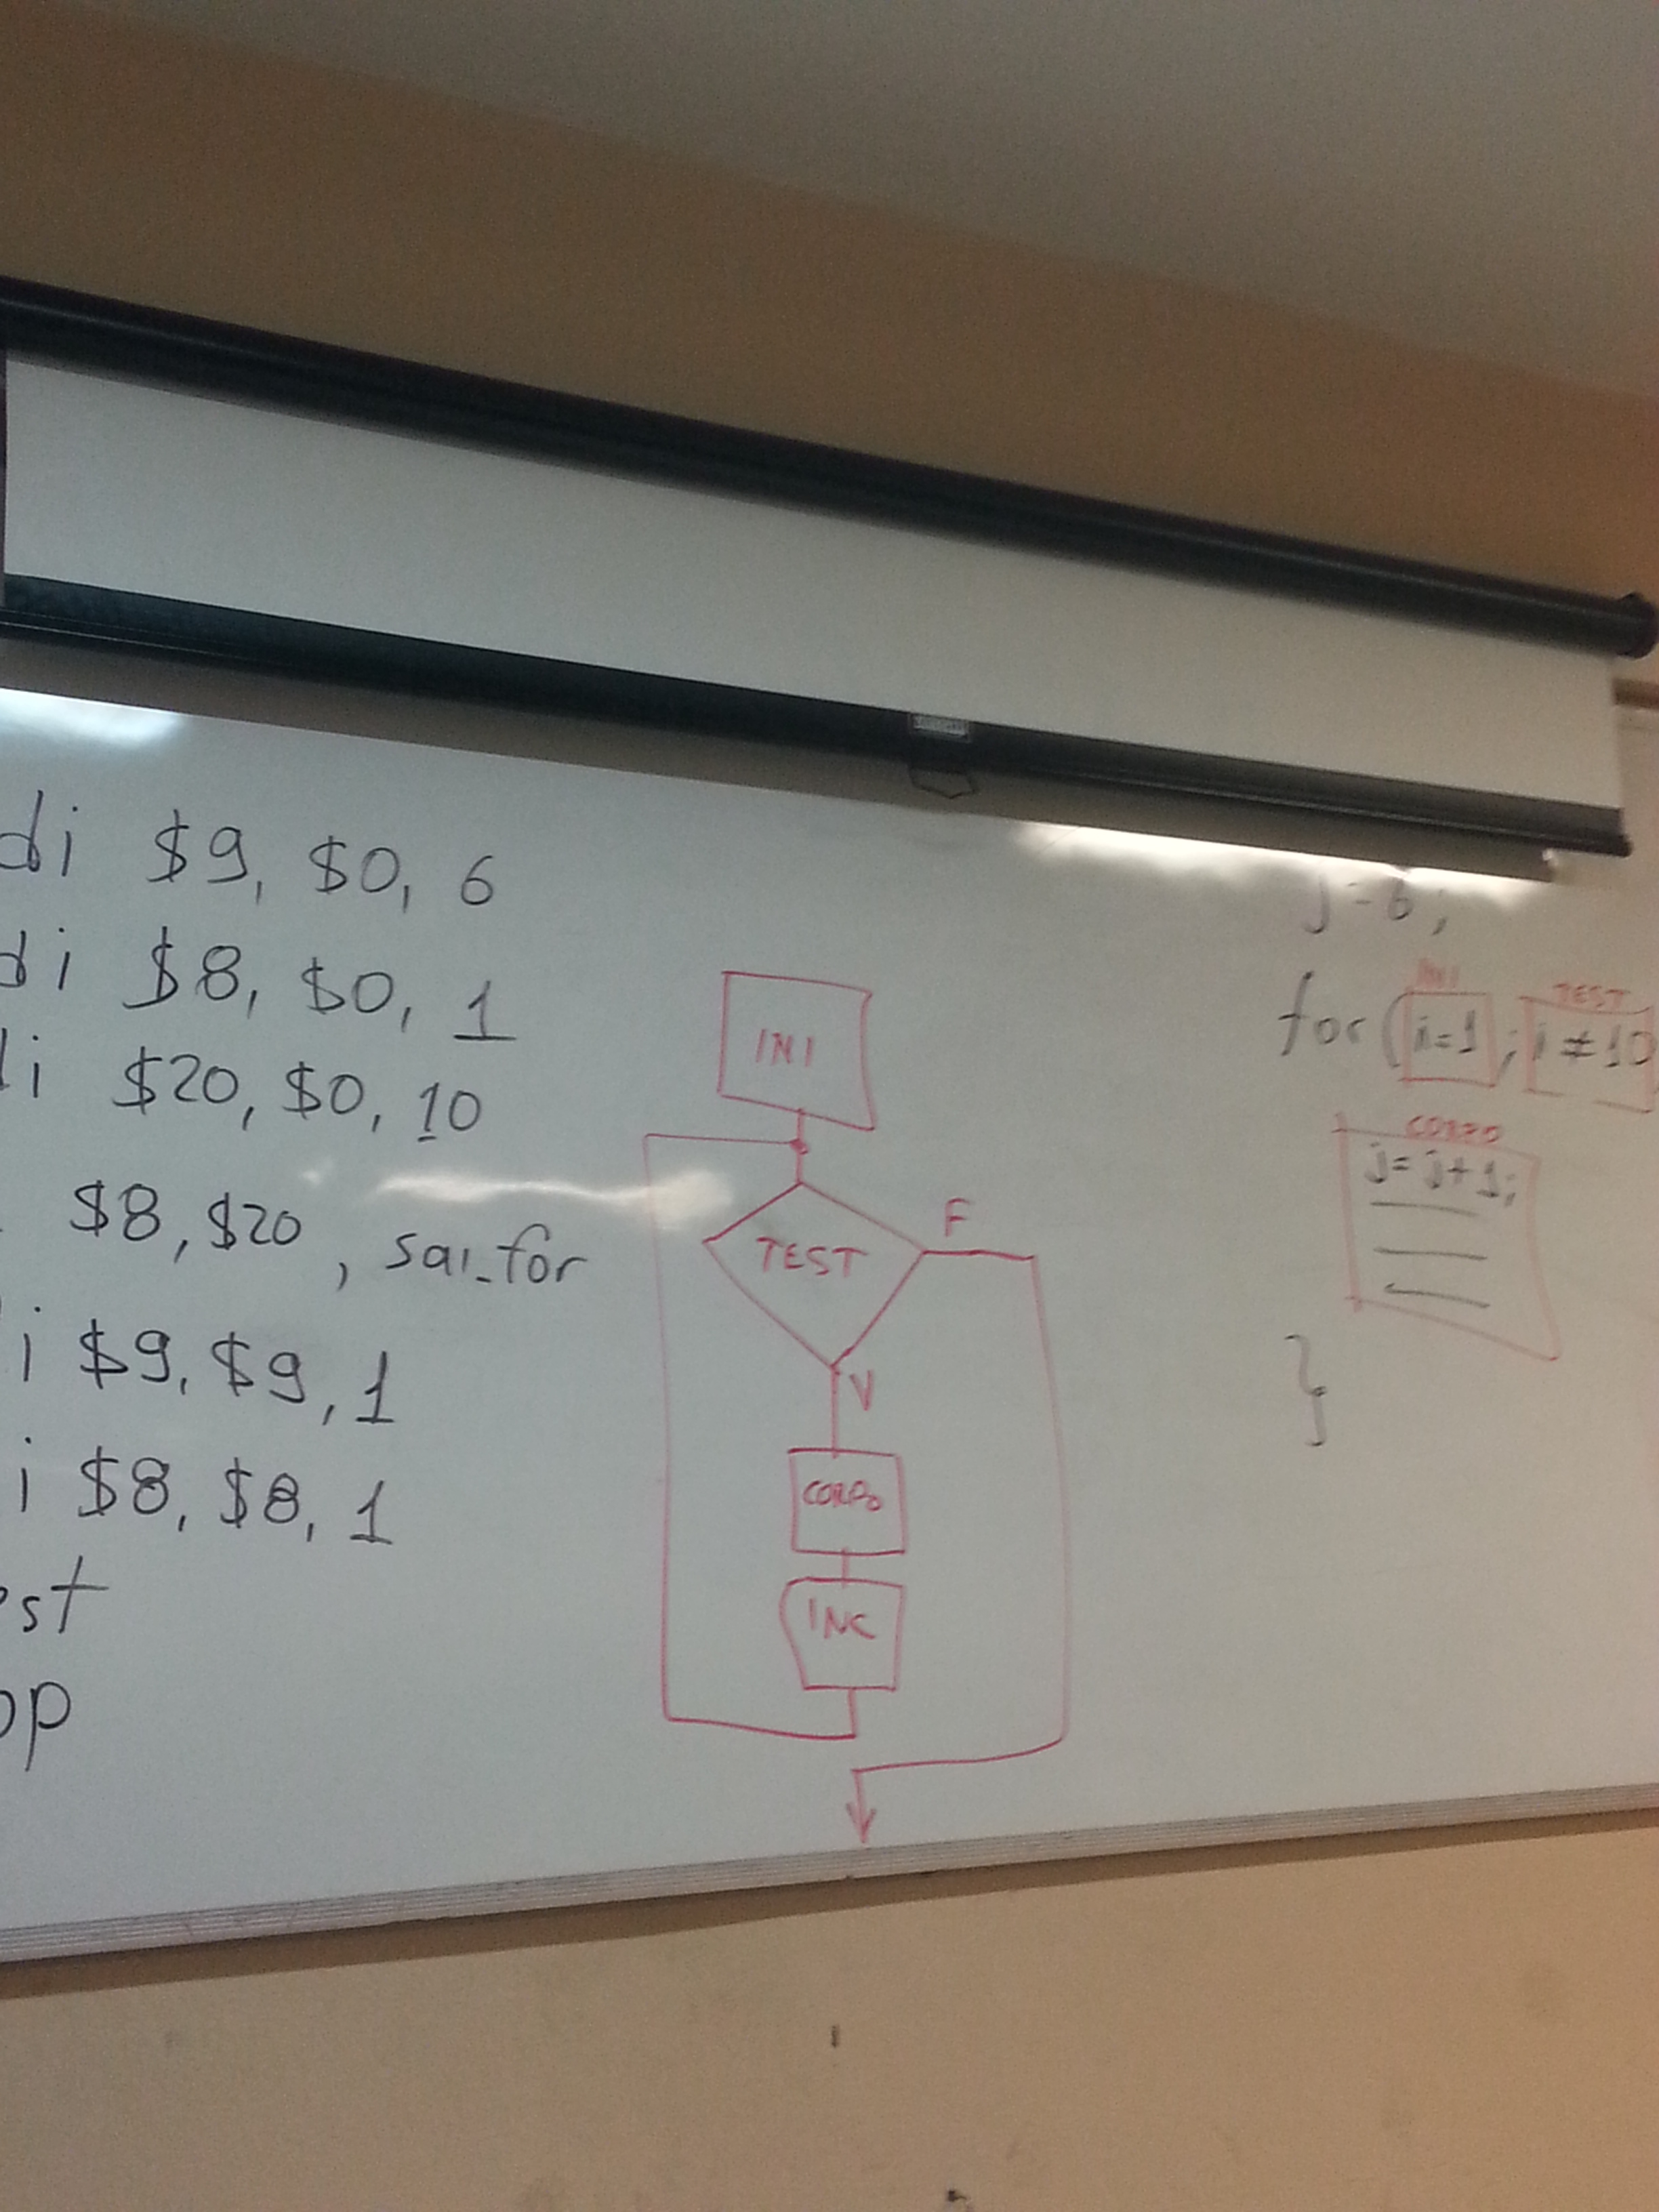 di $9, $0, 6
di $8, $0, 1
di $20, $0, 10
$8, $20, sai_for
i $9, $9, 1
i $8, $8, 1
est
op
INI
TEST
F
V
CORPO
INC
j=6;
INI TEST
for (i=1; i≠10
CORPO
j=j+1;
}